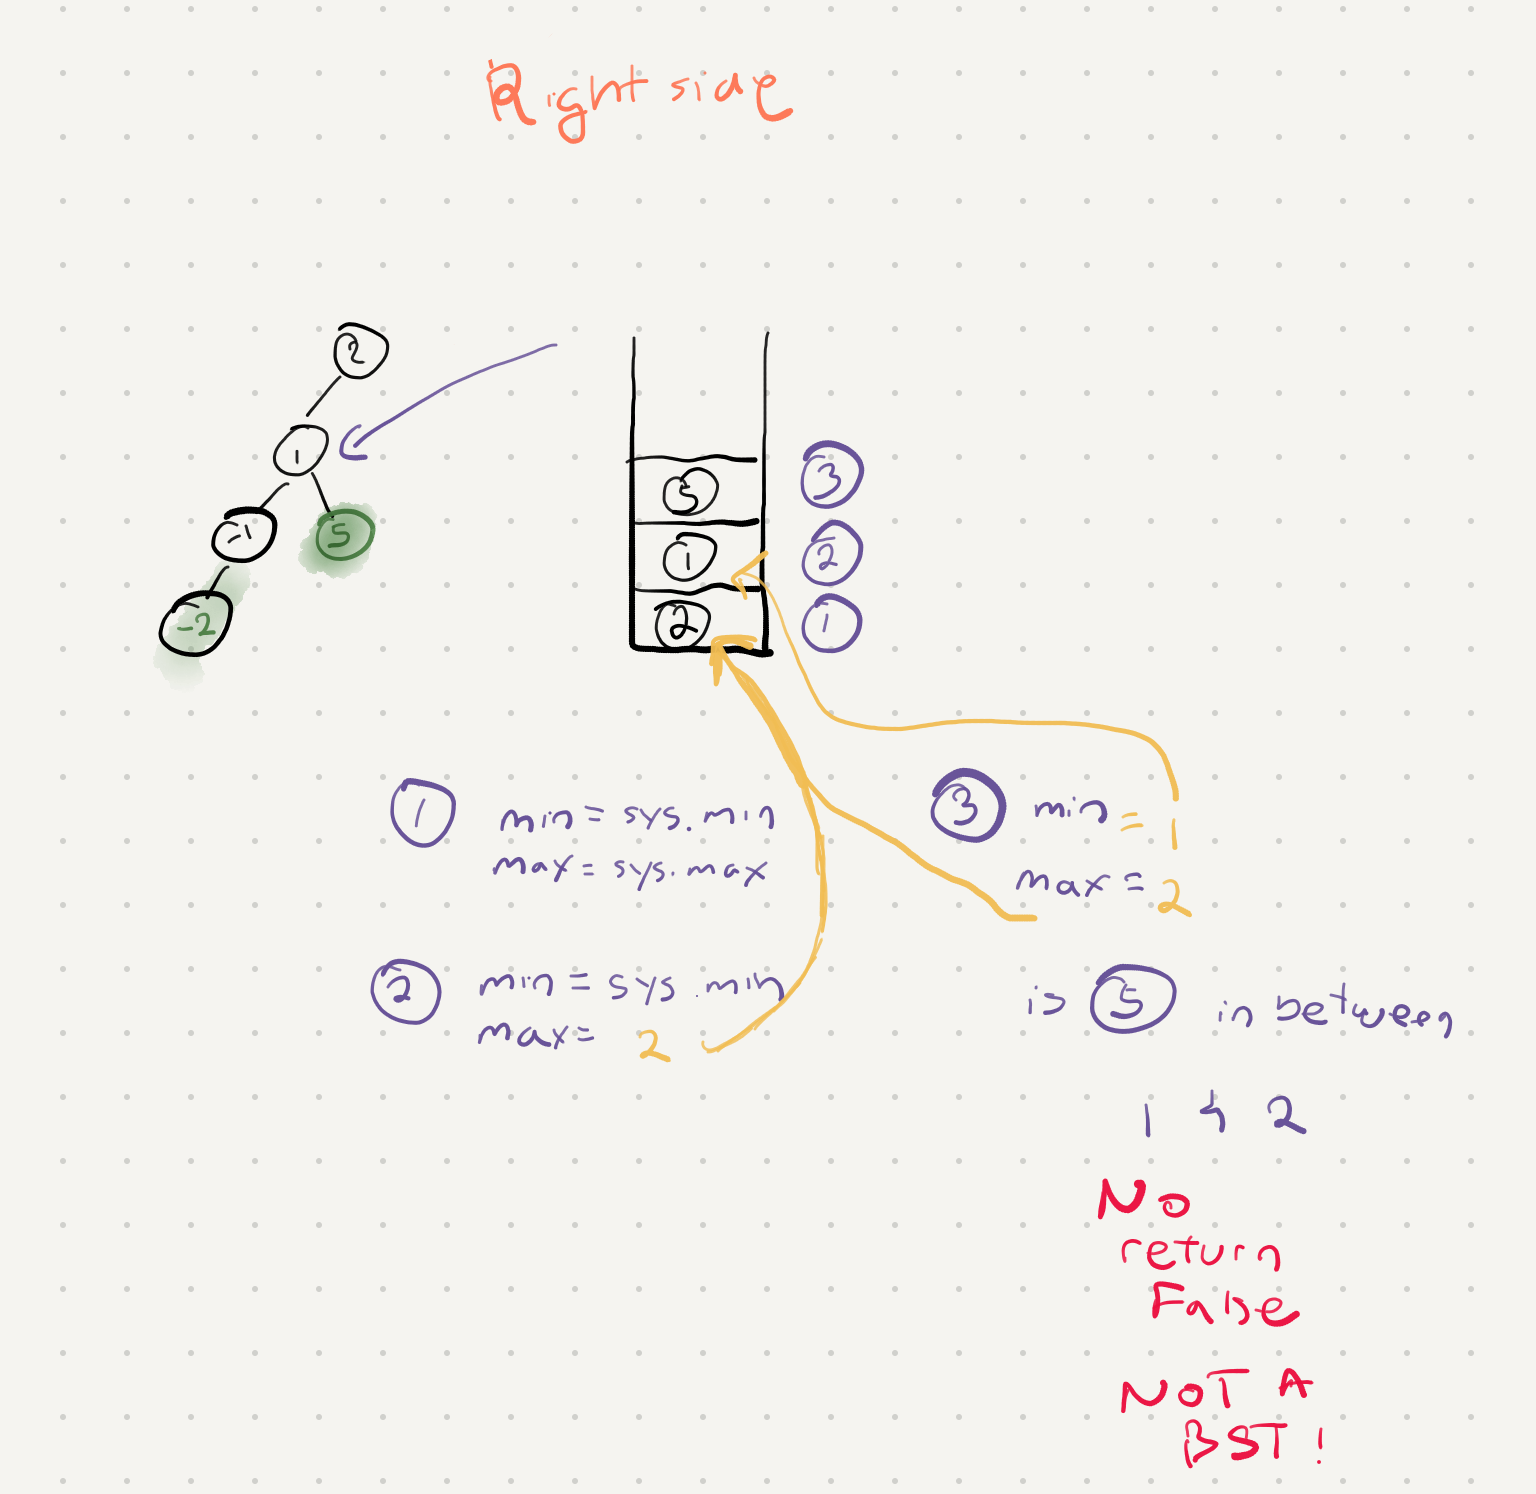 Right side
2
1
-1 5
-2
5 3
1 2
2 1
1 min = sys.min
max = sys.max
3 min = 1
max = 2
2 min = sys.min
max = 2
is 5 in between
1 & 2
No
return
False
NOT A
BST!